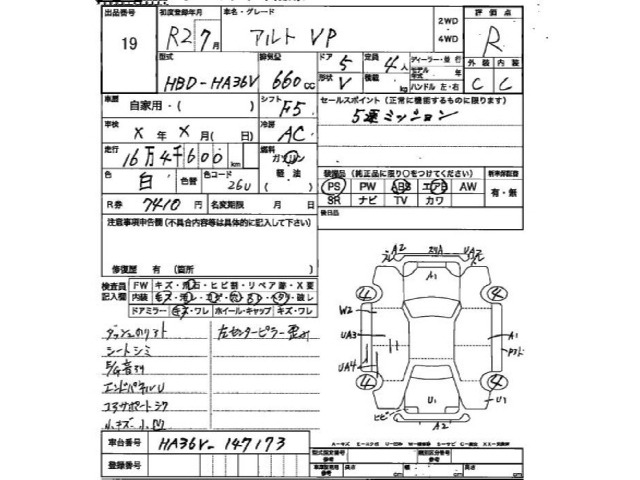 出品番号 初度登録年月 車名・グレード 2WD 4WD 評価点
19 R2年7月 アルト VP R
型式 排気量 ドア 5 定員 4人 ディーラー・並行 外装 内装
HBD-HA36V 660cc 形状 V 積載 kg モデル年式 年式 ハンドル 左・右 C C
車歴 自家用・( ) シフト F5 セールスポイント(正常に機能するものに限ります)
5速ミッション
車検 X年X月(日) 冷房 AC
走行 16万4千600km 燃料 ガソリン 軽油
装備品(純正品に限り○をつけてください) 新車保証書
色 白 色替 色コード 26U PS PW ABS エアB AW 有・無
SR ナビ TV カワ
R券 7410円 名変期限 月 日 後日品
注意事項申告欄(不具合内容等は具体的に記入して下さい)
修復歴 有 (箇所
検査員記入欄 FW キズ・飛石・ヒビ割・リペア跡・X要
内装 キズ・汚レ・コゲ・穴・ヘタリ・破レ
ドアミラー キズ・ワレ ホイール・キャップ キズ・ワレ
左センターピラー歪み
シートシミ
エンドパネルU
コアサポートシワ
小キズ小凹
A2 A1 UA
W2 UA3 A1
UA4
U1 U1
ヒビ A2
4 4 4 4
車台番号 HA36V-147173
登録番号
型式指定番号 参考 類別区分番号 参考
長さ cm 幅 cm 高さ cm